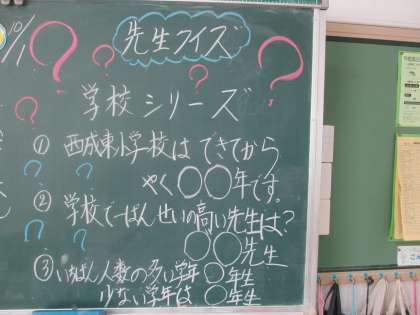 10/1
先生クイズ
学校シリーズ
① 西成東小学校は できてから
やく○○年です。
② 学校で一ばん せいの高い先生は?
○○先生
③ いちばん人数の多い学年 ○年生
少ない学年は ○年生